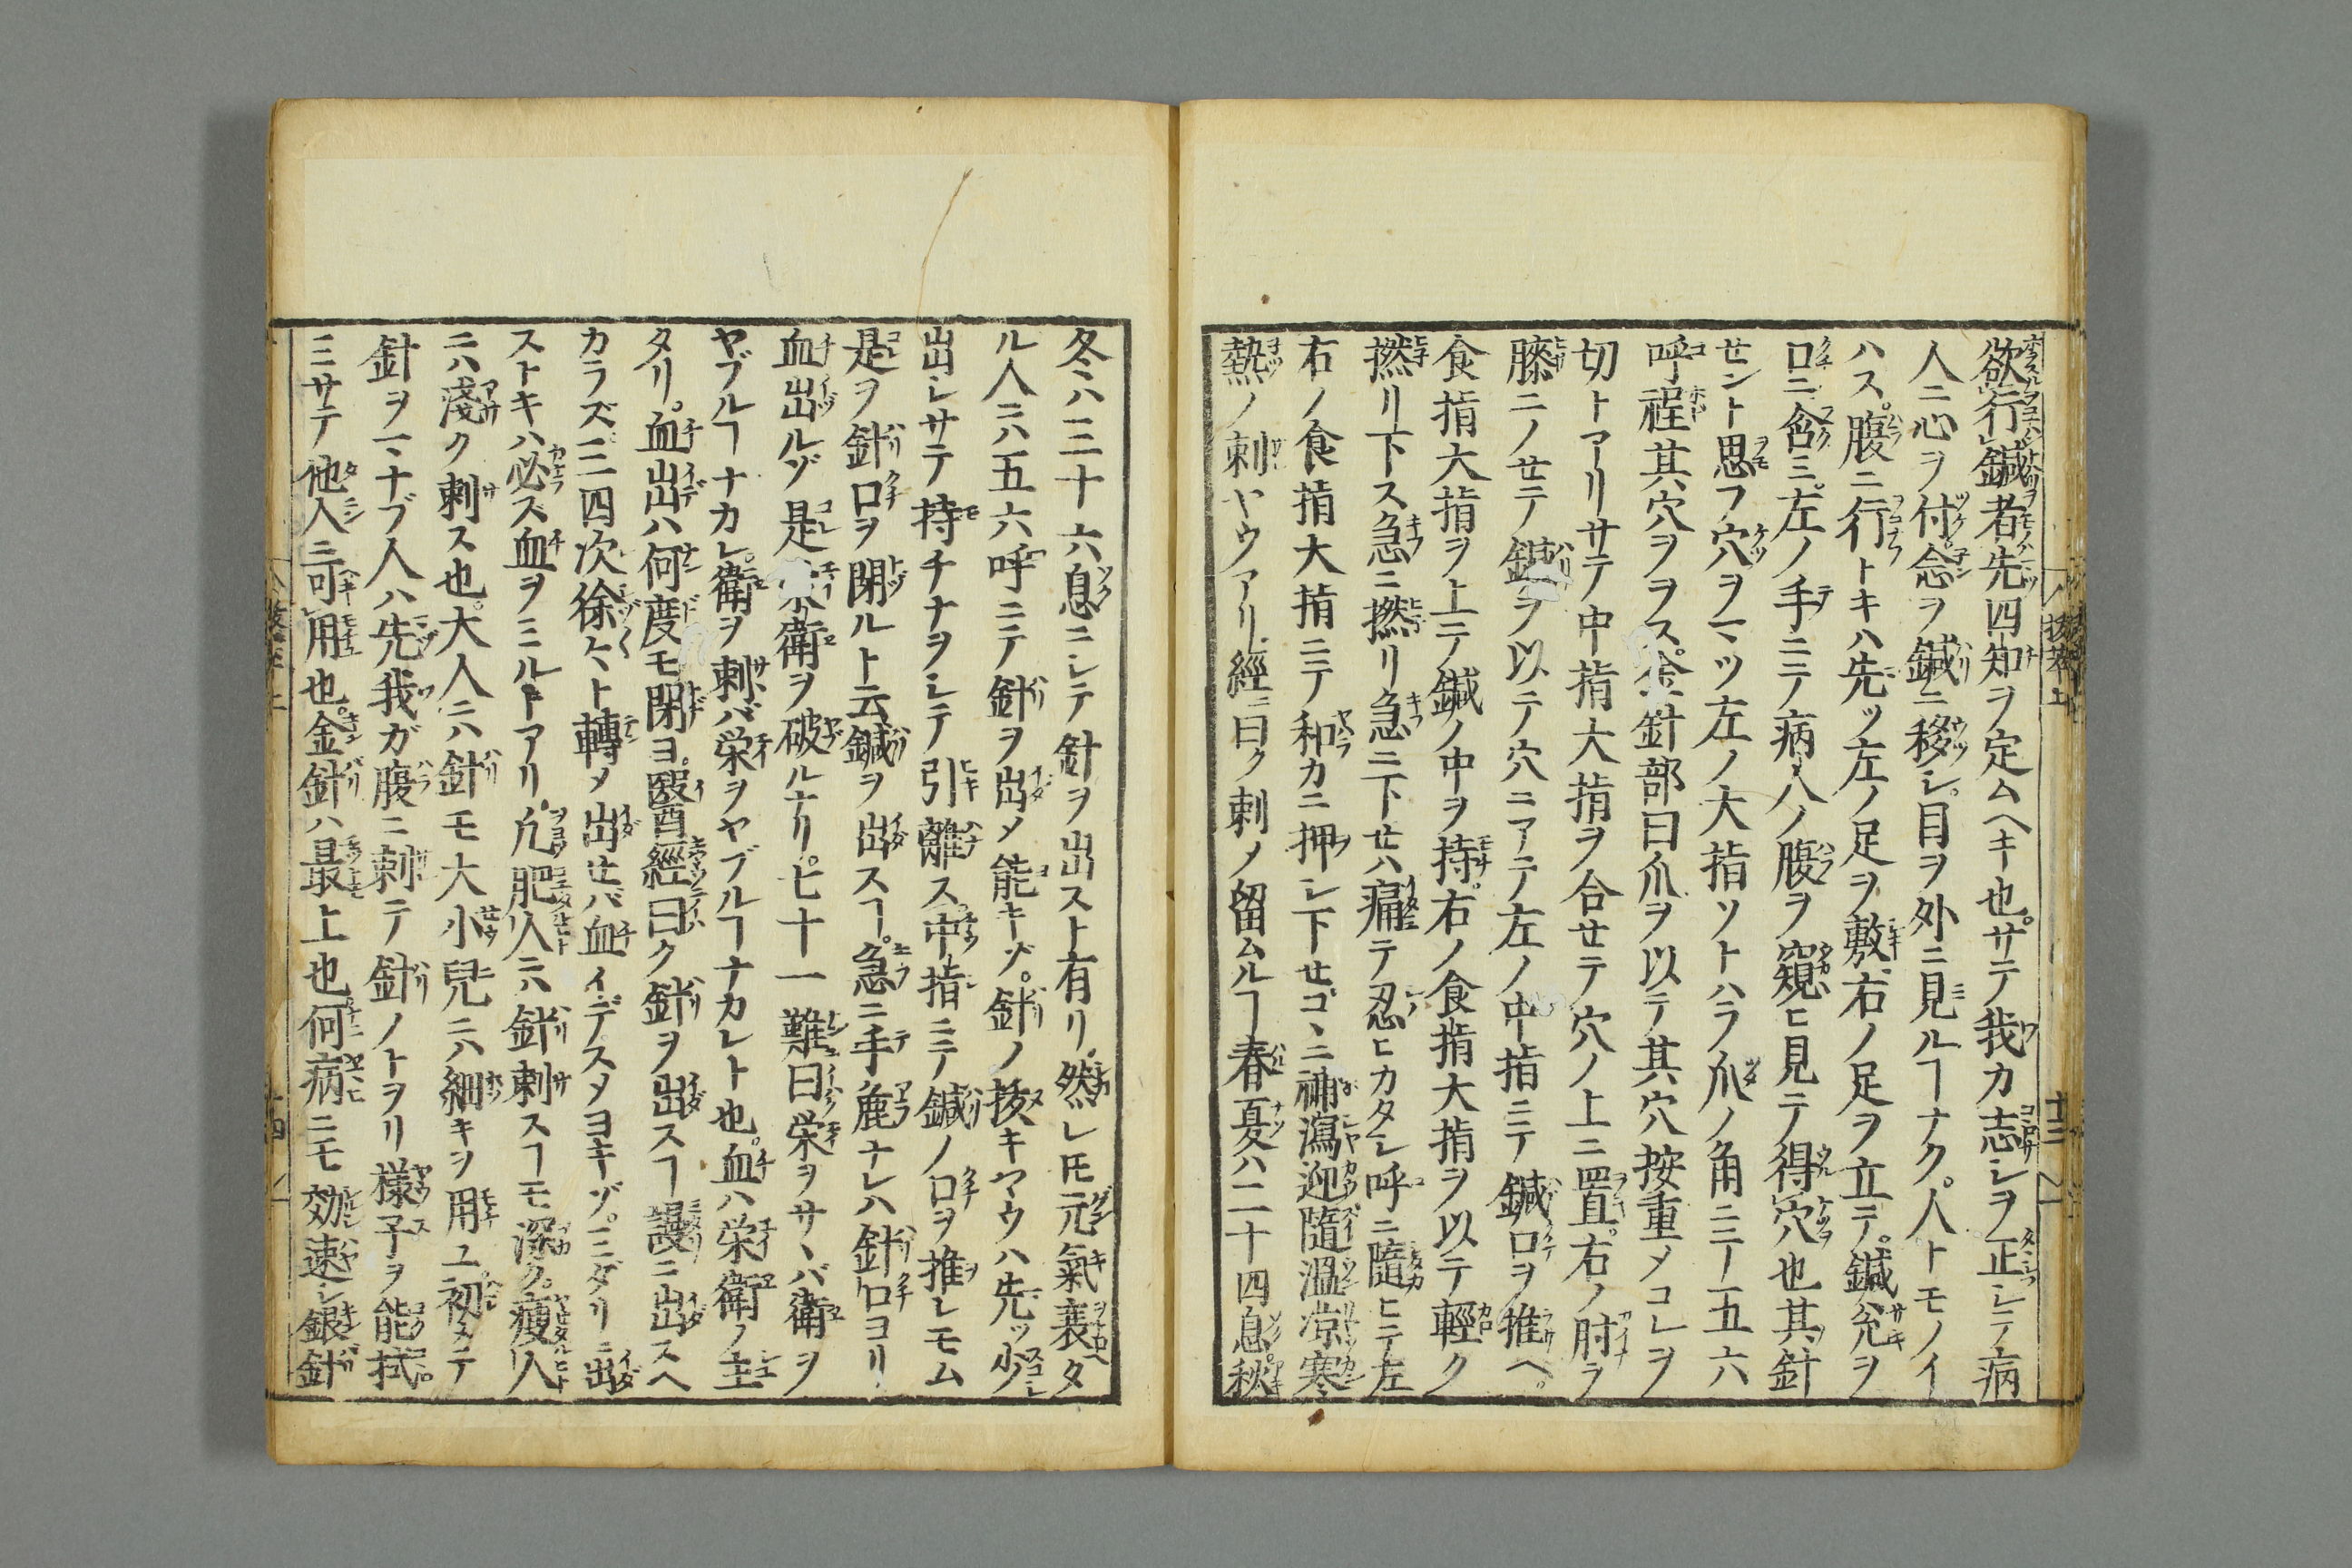 欲行鍼者先四知ヲ定ムヘキ也。サテ我カ志シヲ正シテ病
人ニ心ヲ付。念ヲ鍼ニ移シ。目ヲ外ニ見ルヿナク。人トモノイ
ハス。腹ニ行トキハ先ツ左ノ足ヲ敷右ノ足ヲ立テ。鍼尖ヲ
口ニ含ミ。左ノ手ニテ病人ノ腹ヲ窺ヒ見テ得穴也其針
セント思フ穴ヲマツ左ノ大指ツトハラ爪ノ角ニテ一五六
呼程其穴ヲヲス。金針部曰爪ヲ以テ其穴按重メコレヲ
切トアリサテ中指大指ヲ合セテ穴ノ上ニ置。右ノ肘ヲ
膝ニノセテ鍼ヲ以テ穴ニアテ左ノ中指ニテ鍼口ヲ推ヘ。
食指大指ヲ上テ鍼ノ中ヲ持。右ノ食指大指ヲ以テ輕ク
撚リ下ス急ニ撚リ急ニ下セハ痛テ忍ヒカタシ呼ニ隨ヒテ左
右ノ食指大指ニテ和カニ押シ下セコヽニ補瀉迎隨溫涼寒
熱ノ刺ヤウアリ。經ニ曰ク刺メ留ムルヿ春夏ハ二十四息秋
冬ハ三十六息ニシテ針ヲ出スト有リ。然レ𪜈元氣衰タ
ル人ニハ五六呼ニテ針ヲ出メ能キゾ。針ノ抜キヤウハ先ツ少
出シサテ持チナヲシテ引離ス。中指ニテ鍼ノ口ヲ推シモム
是ヲ針口ヲ閉ルト云鍼ヲ出スヿ。急ニ手麁ナレハ針口ヨリ
血出ルゾ是衛ヲ破ルナリ。七十一難曰栄ヲサヽバ衛ヲ
ヤブルヿナカレ。衛ヲ刺バ栄ヲヤブルヿナカレト也。血ハ栄衛ノ主
タリ。血出ハ何度モ閉ヨ。醫經曰ク針ヲ出スヿ謾ニ出スヘ
カラズ三四次徐々ト轉メ出セバ血イデスメヨキゾ。ミダリニ出
ストキハ必ス血ヲミルトアリ。凢肥人ニハ針刺スヿモ深ク。瘦人
ニハ淺ク刺ス也。大人ニハ針モ大小兒ニハ細キヲ用ユ初メテ
針ヲマナブ人ハ先我ガ腹ニ刺テ針ノトヲリ様子ヲ能拭
ミサテ他人ニ可用也。金針ハ最上也何病ニモ効速シ銀針
抜萃上
十三